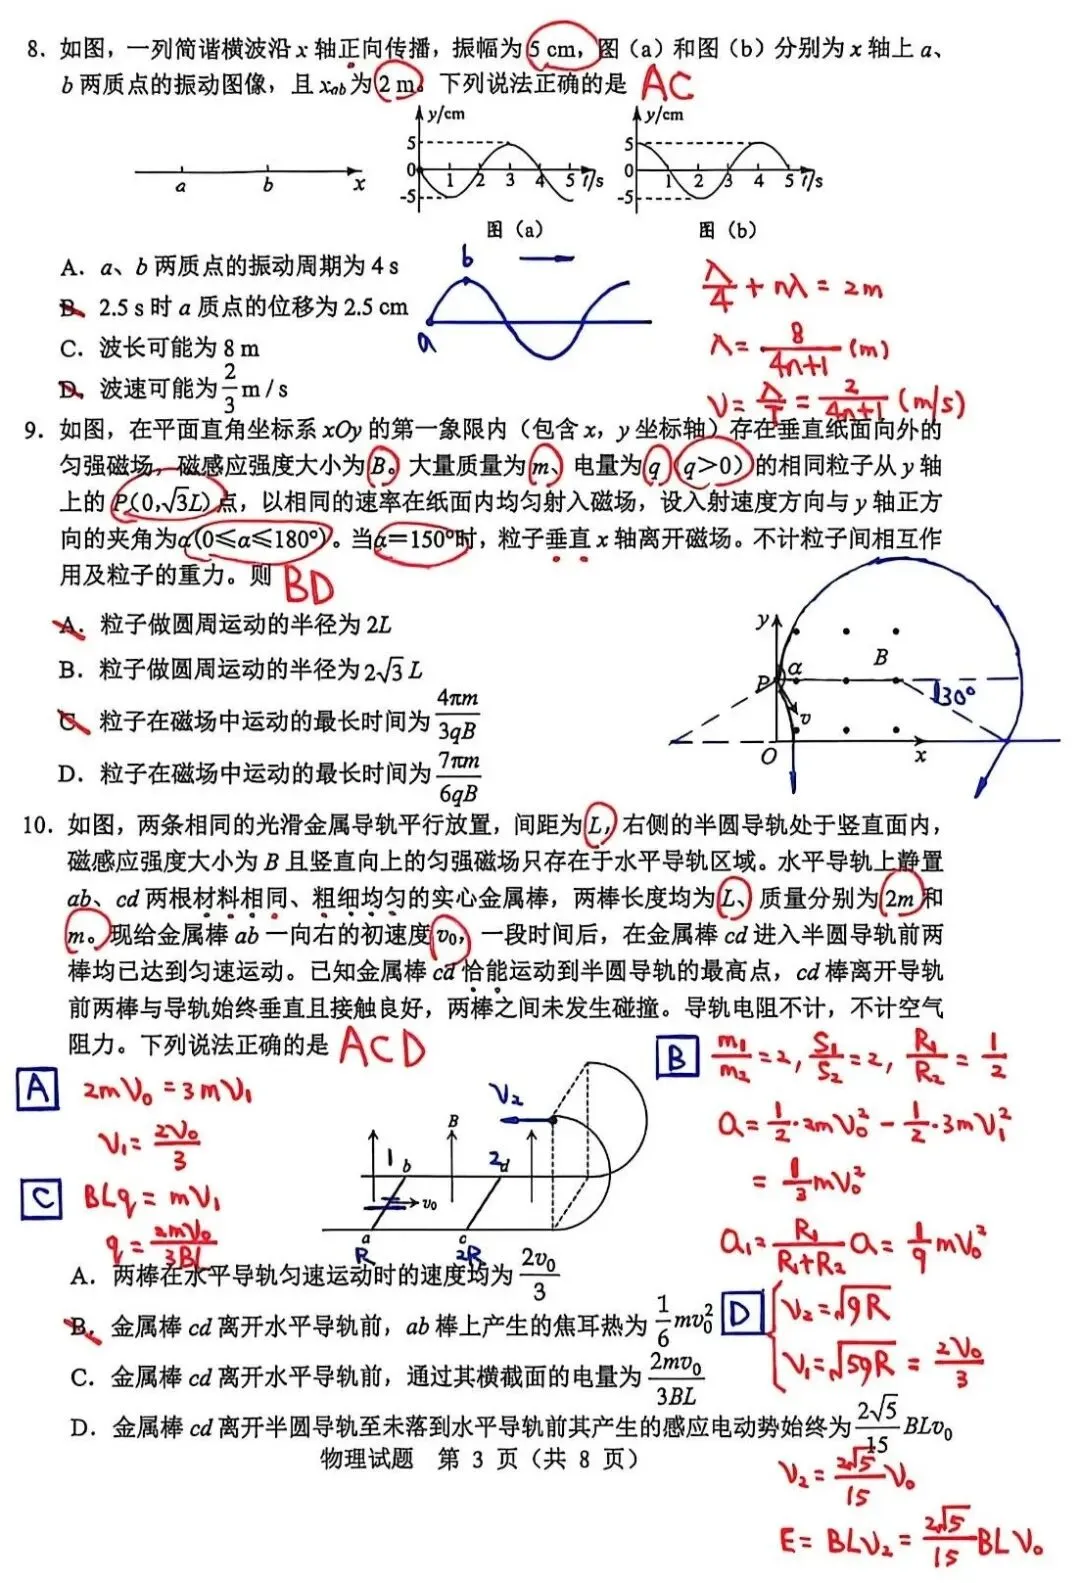 8. 如图，一列简谐横波沿 x 轴正向传播，振幅为 5 cm，图（a）和图（b）分别为 x 轴上 a、
b 两质点的振动图像，且 xab 为 2 m。下列说法正确的是 AC
y/cm y/cm
5 5
0 1 2 3 4 5 t/s 0 1 2 3 4 5 t/s
-5 -5
a b x
图（a） 图（b）
A. a、b 两质点的振动周期为 4 s
B. 2.5 s 时 a 质点的位移为 2.5 cm
C. 波长可能为 8 m
D. 波速可能为 2/3 m / s
b
a
λ/4 + nλ = 2m
λ = 8/(4n+1) (m)
V = λ/T = 2/(4n+1) (m/s)
9. 如图，在平面直角坐标系 xOy 的第一象限内（包含 x，y 坐标轴）存在垂直纸面向外的
匀强磁场，磁感应强度大小为 B。大量质量为 m、电量为 q（q>0）的相同粒子从 y 轴
上的 P(0,√3L) 点，以相同的速率在纸面内均匀射入磁场，设入射速度方向与 y 轴正方
向的夹角为 α(0≤α≤180°)。当 α=150°时，粒子垂直 x 轴离开磁场。不计粒子间相互作
用及粒子的重力。则 BD
A. 粒子做圆周运动的半径为 2L
B. 粒子做圆周运动的半径为 2√3 L
C. 粒子在磁场中运动的最长时间为 4πm/3qB
D. 粒子在磁场中运动的最长时间为 7πm/6qB
y
α B
P 30°
v
O x
10. 如图，两条相同的光滑金属导轨平行放置，间距为 L，右侧的半圆导轨处于竖直面内，
磁感应强度大小为 B 且竖直向上的匀强磁场只存在于水平导轨区域。水平导轨上静置
ab、cd 两根材料相同、粗细均匀的实心金属棒，两棒长度均为 L、质量分别为 2m 和
m。现给金属棒 ab 一向右的初速度 v0，一段时间后，在金属棒 cd 进入半圆导轨前两
棒均已达到匀速运动。已知金属棒 cd 恰能运动到半圆导轨的最高点，cd 棒离开导轨
前两棒与导轨始终垂直且接触良好，两棒之间未发生碰撞。导轨电阻不计，不计空气
阻力。下列说法正确的是 ACD
A 2mV0 = 3mV1
V1 = 2V0/3
C BLq = mV1
q = 2mV0/3BL
V2
B
1 b 2 d
v0
a c
R 2R
B m1/m2 = 2, S1/S2 = 2, R1/R2 = 1/2
Q = 1/2·2mV0² − 1/2·3mV1²
= 1/3 mV0²
Q1 = R1/(R1+R2) Q = 1/9 mV0²
A. 两棒在水平导轨匀速运动时的速度均为 2v0/3
B. 金属棒 cd 离开水平导轨前，ab 棒上产生的焦耳热为 1/6 mv0²
C. 金属棒 cd 离开水平导轨前，通过其横截面的电量为 2mv0/3BL
D. 金属棒 cd 离开半圆导轨至未落到水平导轨前其产生的感应电动势始终为 2√5/15 BLv0
D V2 = √gR
V1 = √5gR = 2V0/3
物理试题 第 3 页（共 8 页）
V2 = 2√5/15 V0
E = BLV2 = 2√5/15 BLV0